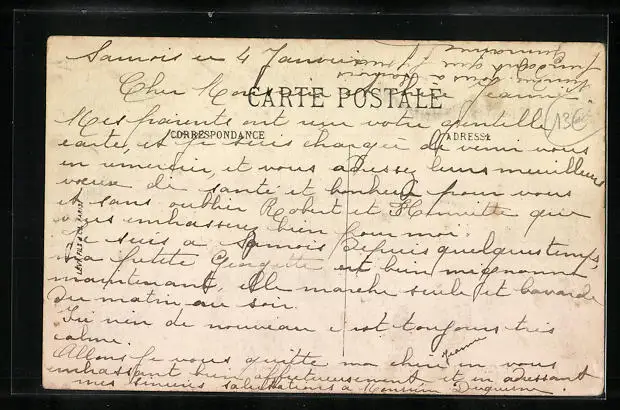 Samois le 4 Janvier
CARTE POSTALE
Jeanne
Mes parents ont reçu votre gentille
13€
CORRESPONDANCE
ADRESSE
carte, et je suis chargée de venir vous
en remercier, et vous adresser leurs meilleurs
voeux de santé et bonheur pour vous
et sans oublier Robert et Henriette que
vous embrasserez bien pour moi.
Je suis à Samois depuis quelques temps,
la petite Georgette est bien mignonne
LEVY FILS & Cie PARIS
maintenant, elle marche seule et bavarde
du matin au soir.
Ici rien de nouveau c'est toujours très
calme.
Allons je vous quitte ma chère Jeanne en vous
embrassant bien affectueusement et en adressant
mes sincères salutations à Monsieur